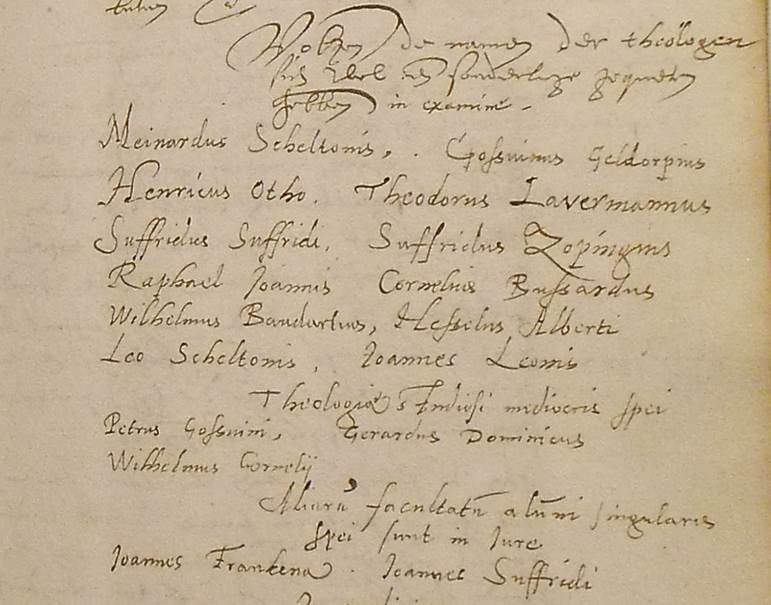 Volgen de namen der theologen
sich wel en sonderlinge gequeten
hebben in examine.
Meinardus Scheltonis, . Gossuinus Geldorpius
Henricus Otho. Theodorus Lavermannus
Suffridus Suffridi, Suffridus Zopingius
Raphael Joannis Cornelius Bussardus
Wilhelmus Baudartius, Hesselus Alberti
Leo Scheltonis, Joannes Leonis
Theologiæ studiosi mediocris spei
Petrus Gossuini, Gerardus Dominicus
Wilhelmus Cornelij
Aliarū facultatū alūni singularis
spei sunt in Jure
Joannes Frankena. Joannes Suffridi